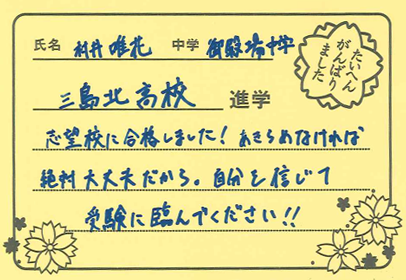 氏名 村井唯花 中学 御殿場中学
たいへん
がんばり
ました
三島北高校 進学
志望校に合格しました!あきらめなければ
絶対大丈夫だから。自分を信じて
受験に臨んでください!!